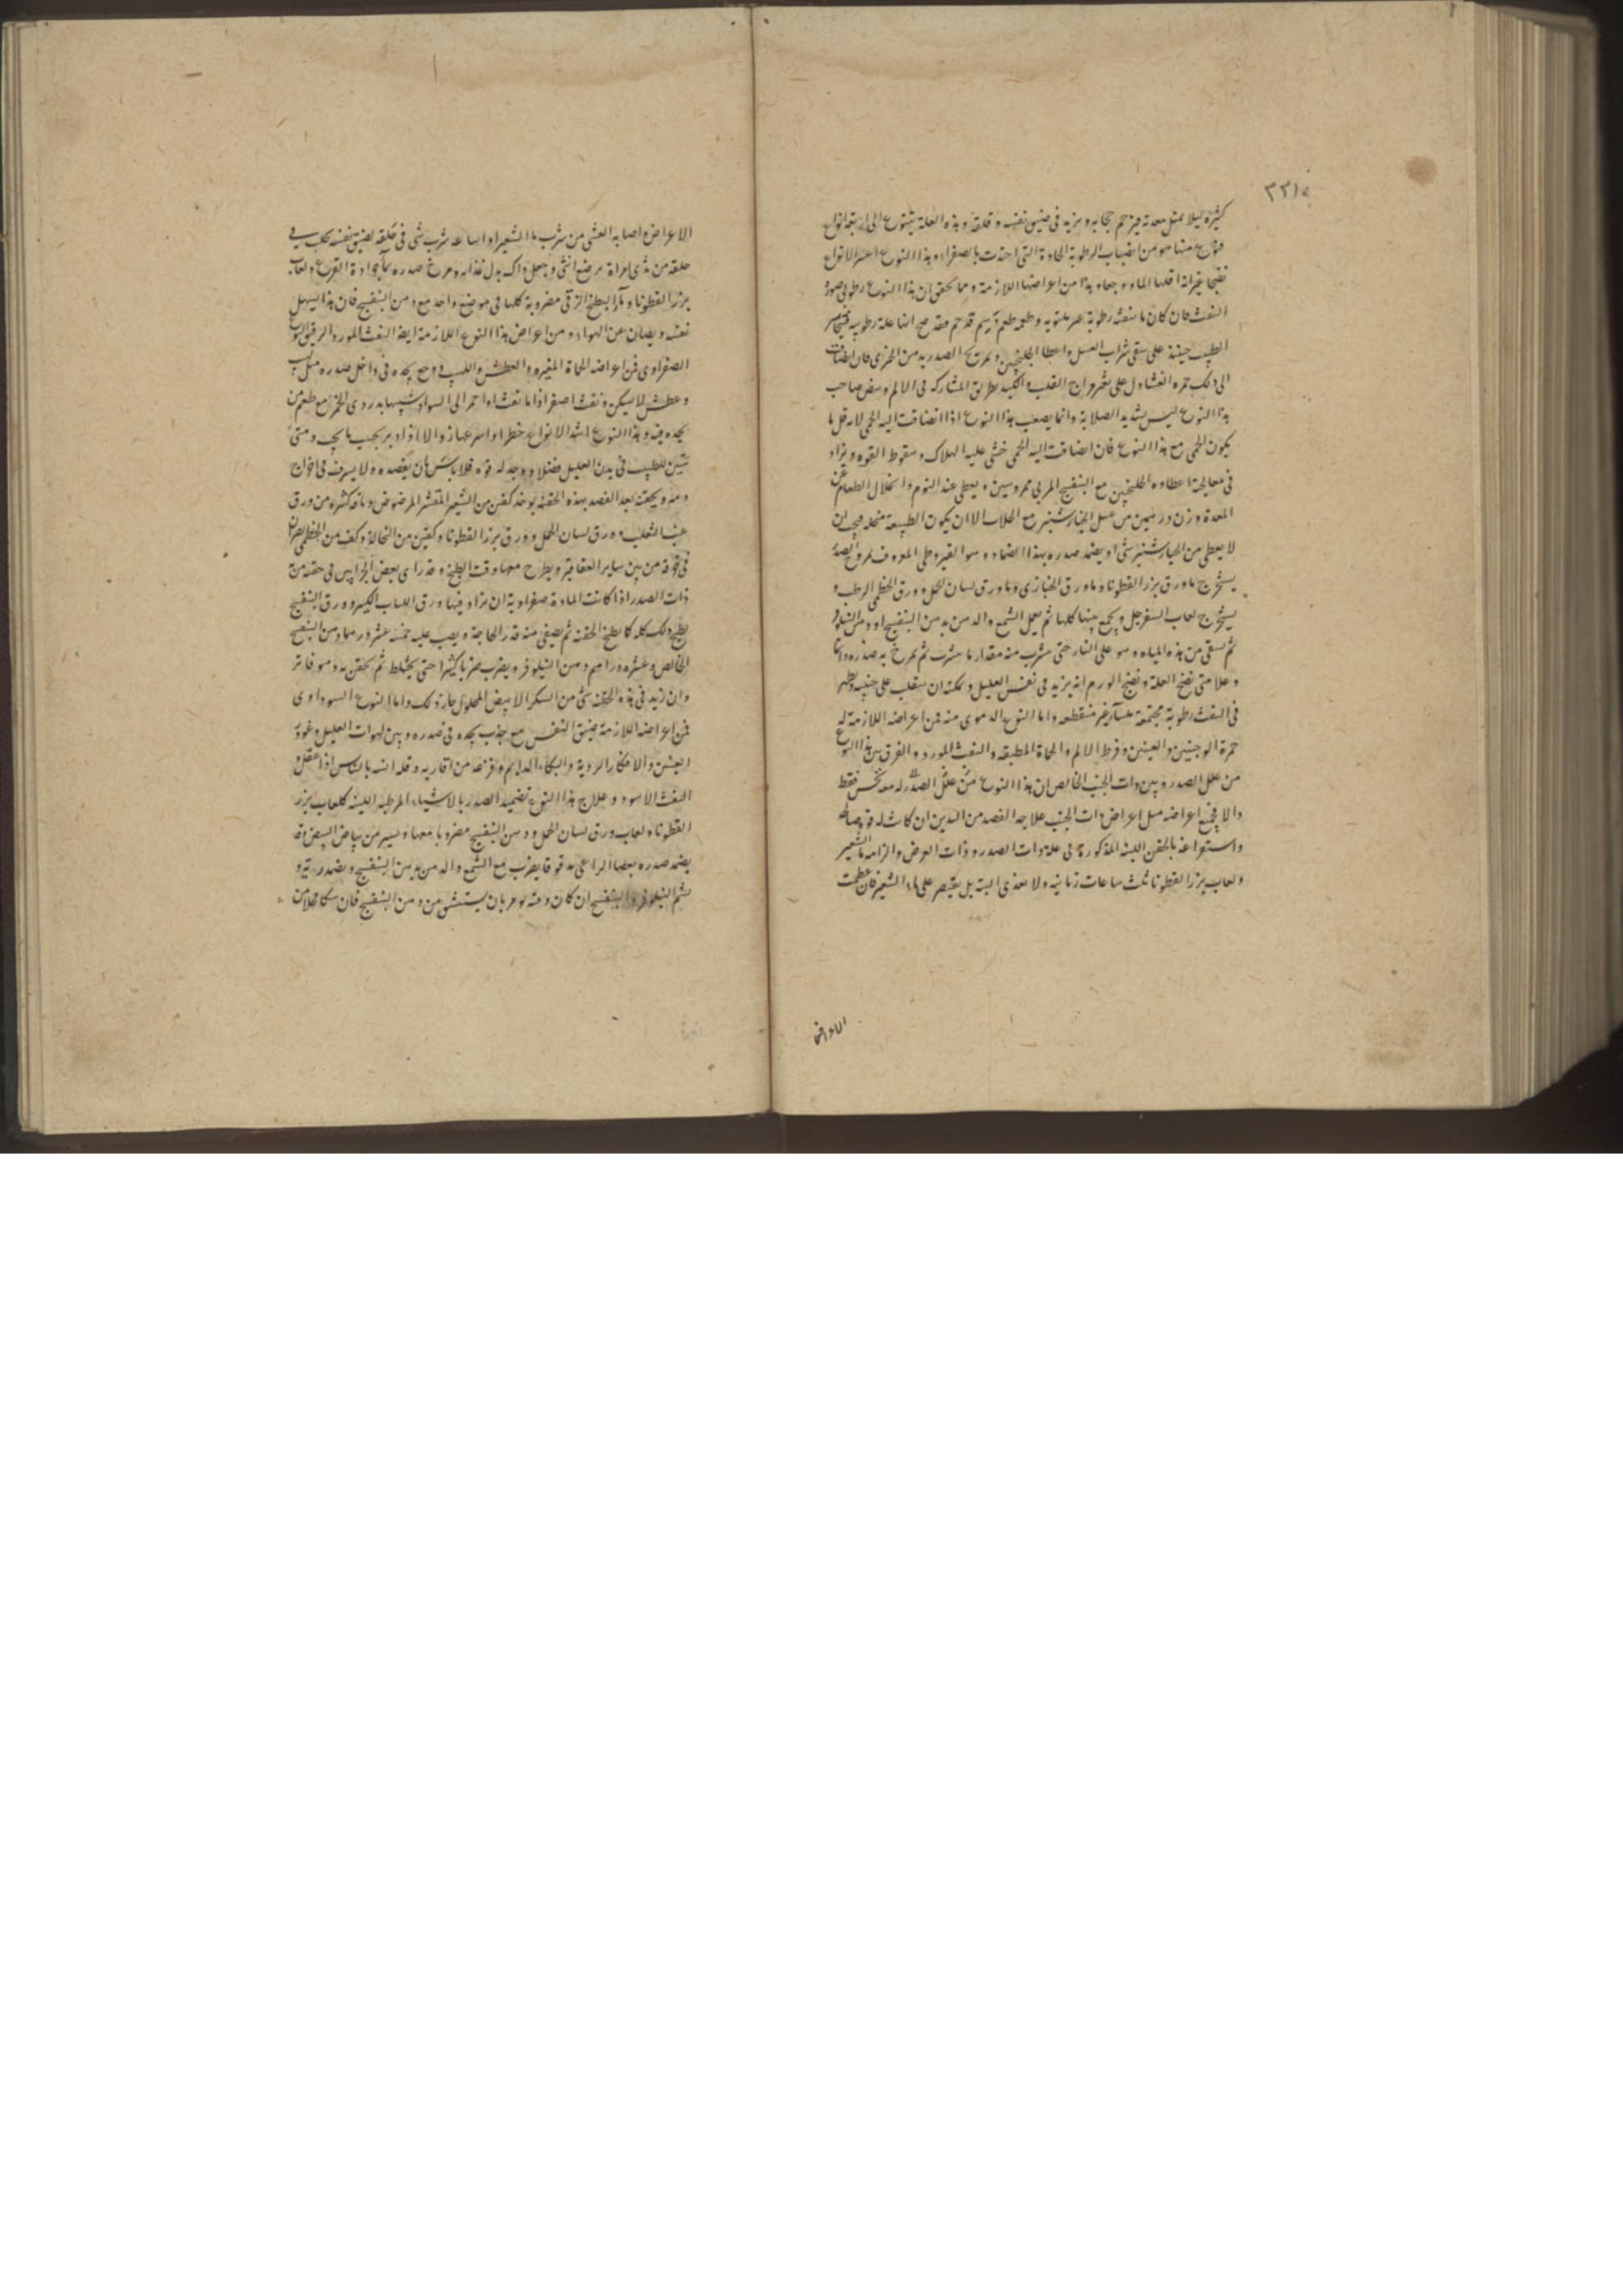 ٣٣١
كثيرة ليلا يمتلى معدته فيزحم حجابه ويزيد في ضيق نفسه وقلقه وهذه العلة يتنوع الى اربعة انواع
فنوع منها هو من انصباب الرطوبة الحادة التى احتدت بالصفراء وهذا النوع اعسر الانواع
نضجا غير انه اقلها الما ووجعا وهذا من اعراضها اللازمة ومما يحقق ان هذا النوع رطوبى صورة
النفث فان كان ما ينفثه رطوبة غير ملتوية وطعمه طعم دسم فقد صح انها علة رطوبية فيتجاسر
الطبيب حينئذ على سقى شراب العسل واعطا الجلنجبين وتمريخ الصدر بدهن الخيرى فان انضافت
الى ذلك حمرة النفث دل على تغير مزاج القلب والكبد بطريق المشاركة في الالم ونبض صاحب
هذا النوع ليس بشديد الصلابة وانما يصعب هذا النوع اذا انضافت اليه الحمى لانه قل ما
يكون الحمى مع هذا النوع فان انضافت اليه الحمى خشى عليه الهلاك وسقوط القوه ويزاد
في معالجته اعطاوه الجلنجبين مع البنفسج المربى ممروسين ويعطى عند النوم وانحلال الطعام عن
المعدة وزن درهمين من عسل الخيارشنبر مع الجلاب الا ان يكون الطبيعة منحلة فيجب ان
لا يعطى من الخيارشنبر شى او يضمد صدره بهذا الضماد وهو القيروطى المعروف بمروخ الصدر
يستخرج ماء ورق بزر القطونا وماء ورق الخبازى وماء ورق لسان الحمل وورق الخطمى الرطب و
يستخرج لعاب السفرجل ويجمع بينها كلها ثم يعمل الشمع والدهن بدهن البنفسج او دهن النيلوفر
ثم يسقى من هذه المياه وهو على النار حتى يشرب منه مقدار ما يشرب ثم يمرخ به صدره دائما
وعلامتى نضج العلة ونضج الورم انه يزيد في نفس العليل ويمكنه ان ينقلب على جنبيه ويظهر
في النفث رطوبة مجتمعة غير منقطعه واما النوع الدموى منه فمن اعراضه اللازمة له
حمرة الوجنتين والعينين وفرط الالم والحماة المطبقه والنفث المورد والفرق بين هذا النوع
من علل الصدر وبين ذات الجنب الخالص ان هذا النوع من علل الصدر له معه نخس فقط
والا فجميع اعراضه مثل اعراض ذات الجنب علاجه الفصد من اليدين ان كانت له قوة صالحة
واستفراغه بالحقن اللينه المذكورة في علة ذات الصدر وذات العرض والزامه ماء الشعير
ولعاب بزر القطونا ثلث ساعات زمانيه ولا يغذى البته بل يقتصر على ماء الشعير فان عظمت
الاعراض
الاعراض واصابه الغشى من شرب ماء الشعير او اساعه شرب شى في حلقه لضيق نفسه يحلب في
حلقه من ثدى امراة مرضع انثى وجعل ذاك بدل غذايه ومرخ صدره بماء جرادة القرع ولعاب
بزر القطونا وماء البطيخ الزقى مضروبة كلها في موضع واحد مع دهن البنفسج فان هذا يسهل
نفثه ويصان عن الهواء ومن اعراض هذا النوع اللازمة ايضا النفث المورد الرقيق النوع
الصفراوى فمن اعراضه الحماة المغيره والعطش واللهب ووجع يجده في داخل صدره مثل لهب
وعطش لا يسكن ونفث اصفر اذا ما نفثه او احمر الى السواد شبيها بدردى الخمر مع طعم من
يجده فيه وهذا النوع اشد الانواع خطرا واسرعها زوالا اذا دبر بحسب ما يجب ومتى
تبين للطبيب في بدن العليل فضلا ووجد له قوه فلا باس بان يفصده ولا يسرف في اخراج
دمه ويحقنه بعد الفصد بهذه الحقنه يوخذ كفين من الشعير المقشر المرضوض وباقه كثيرة من ورق
عنب الثعلب وورق لسان الحمل وورق بزر القطونا وكفين من النخالة وكف من الخطمى يصران
في خرقة من بين ساير العقاقير ويطرح معها وقت الطبخ وقد راى بعض الجرايين في حقنه من
ذات الصدر اذا كانت المادة صفراوية ان يزاد فيها ورق اللبلاب الكبير وورق البنفسج
يطبخ ذلك كله كما يطبخ الحقنه ثم يصفى منه قدر الحاجة ويصب عليه خمسة عشر درهما دهن البنفسج
الخالص وعشره دراهم دهن النيلوفر ويضرب ضربا كثيرا حتى يختلط ثم يحقن به وهو فاتر
وان زيد في هذه الحقنه شى من السكر الابيض المحلول جاز ذلك واما النوع السوداوى
فمن اعراضه اللازمة ضيق النفس مع جذب يجده في صدره وبين لهوات العليل وغور
العينين والافكار الردية والبكاء الدايم وفزعه من اقاربه وقلة انسه بالناس اذا عقل و
النفث الاسود وعلاج هذا النوع تضميد الصدر بالاشياء المرطبه اللينه كلعاب بزر
القطونا ولعاب ورق لسان الحمل ودهن البنفسج مضروبا معها ويسير من بياض البيض وقد
يضمد صدره بعصا الراعى مدقوقا يضرب مع الشمع والدهن بدهن البنفسج ويضمد ريته و
يشم النيلوفر والبنفسج ان كان وقته يومر بان يستنشق من دهن البنفسج فان سكا